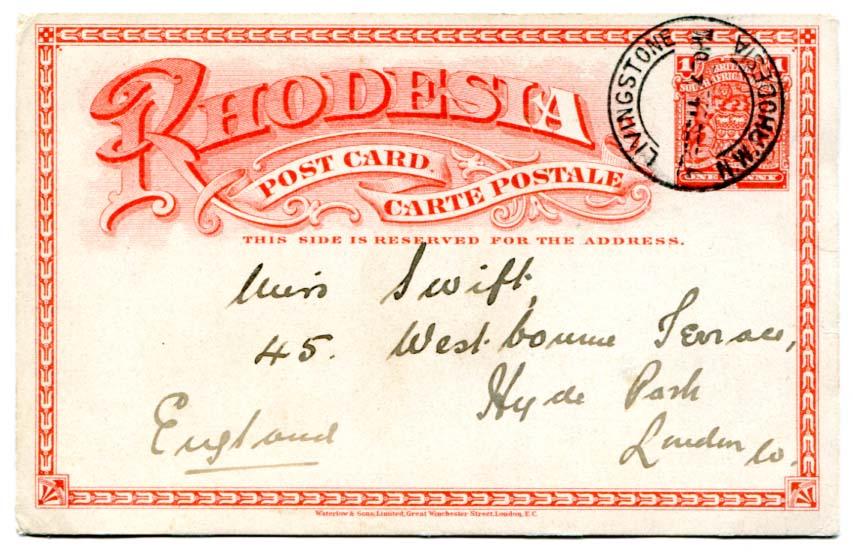 RHODESIA
POST CARD.
CARTE POSTALE
THIS SIDE IS RESERVED FOR THE ADDRESS.
LIVINGSTONE
N.W. RHODESIA
1 1
BRITISH
SOUTH AFRICA
ONE PENNY
Miss Swift,
45. Westbourne Terrace,
Hyde Park
London W.
England
Waterlow & Sons, Limited, Great Winchester Street, London, E.C.